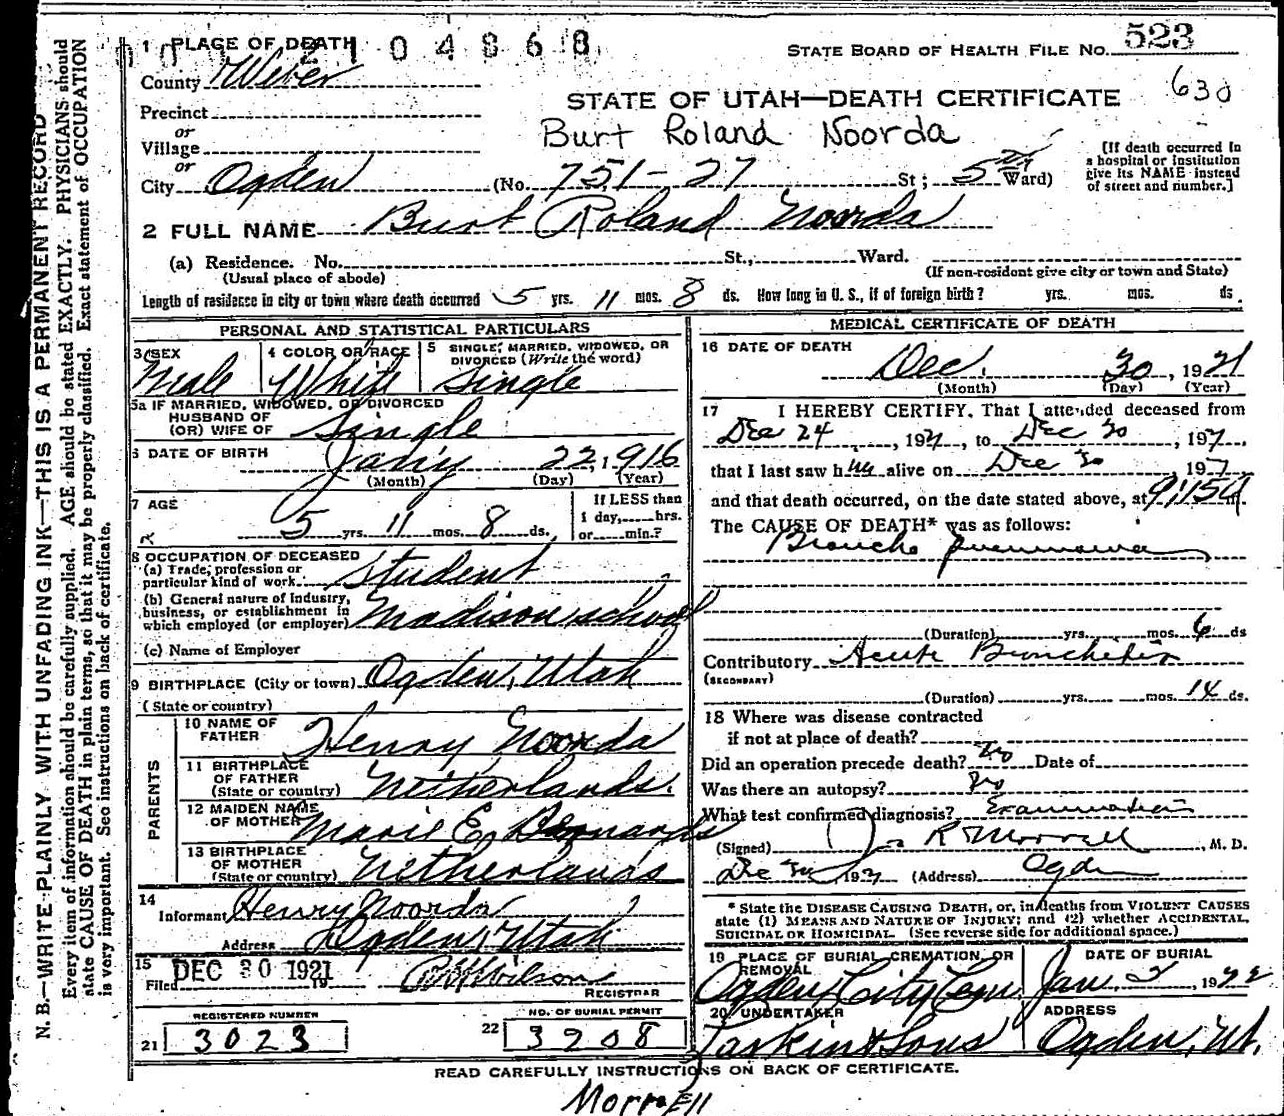 2104868
1 PLACE OF DEATH
STATE BOARD OF HEALTH FILE NO. 523
County Weber
630
STATE OF UTAH—DEATH CERTIFICATE
Precinct
Burt Roland Noorda
or
Village
or
City Ogden (No. 751-27 St; 5th Ward)
[If death occurred in a hospital or institution give its NAME instead of street and number.]
2 FULL NAME Burt Roland Noorda
(a) Residence. No. St., Ward.
(Usual place of abode) (If non-resident give city or town and State)
Length of residence in city or town where death occurred 5 yrs. 11 mos. 8 ds. How long in U. S., if of foreign birth? yrs. mos. ds.
PERSONAL AND STATISTICAL PARTICULARS
3 SEX Male
4 COLOR OR RACE White
5 SINGLE, MARRIED, WIDOWED, OR DIVORCED (Write the word) Single
5a IF MARRIED, WIDOWED, OR DIVORCED
HUSBAND OF
(OR) WIFE OF Single
6 DATE OF BIRTH Jany 22, 1916
(Month) (Day) (Year)
7 AGE 5 yrs. 11 mos. 8 ds.
If LESS than
1 day, hrs.
or min.?
8 OCCUPATION OF DECEASED
(a) Trade, profession or
particular kind of work. Student
(b) General nature of industry,
business, or establishment in
which employed (or employer) Madison school
(c) Name of Employer
9 BIRTHPLACE (City or town) Ogden, Utah
(State or country)
PARENTS
10 NAME OF
FATHER Henry Noorda
11 BIRTHPLACE
OF FATHER
(State or country) Netherlands.
12 MAIDEN NAME
OF MOTHER Marie E. Bernards
13 BIRTHPLACE
OF MOTHER
(State or country) Netherlands
14
Informant Henry Noorda
Address Ogden, Utah
15
Filed DEC 30 1921 19 Wilson
REGISTRAR
REGISTERED NUMBER
21 3023
NO. OF BURIAL PERMIT
22 3908
MEDICAL CERTIFICATE OF DEATH
16 DATE OF DEATH
Dec. 30, 1921
(Month) (Day) (Year)
17 I HEREBY CERTIFY, That I attended deceased from
Dec 24, 1921, to Dec 30, 1921,
that I last saw him alive on Dec 30 1921
and that death occurred, on the date stated above, at 9:15
The CAUSE OF DEATH* was as follows:
Broncho pneumonia
(Duration) yrs. mos. 6 ds
Contributory Acute Bronchitis
(SECONDARY)
(Duration) yrs. mos. 14 ds.
18 Where was disease contracted
if not at place of death?
Did an operation precede death? No Date of
Was there an autopsy? No
What test confirmed diagnosis? Examination
(Signed) R Morrell, M. D.
Dec 30 1921 (Address) Ogden
* State the DISEASE CAUSING DEATH, or, in deaths from VIOLENT CAUSES
state (1) MEANS AND NATURE OF INJURY; and (2) whether ACCIDENTAL,
SUICIDAL OR HOMICIDAL. (See reverse side for additional space.)
19 PLACE OF BURIAL, CREMATION, OR
REMOVAL
Ogden City Cem.
DATE OF BURIAL
Jan. 2 1922
20 UNDERTAKER
Larkin & Sons
ADDRESS
Ogden, Ut.
READ CAREFULLY INSTRUCTIONS ON BACK OF CERTIFICATE.
Morrell
N. B.—WRITE PLAINLY WITH UNFADING INK—THIS IS A PERMANENT RECORD
Every item of information should be carefully supplied. AGE should be stated EXACTLY. PHYSICIANS should
state CAUSE OF DEATH in plain terms, so that it may be properly classified. Exact statement of OCCUPATION
is very important. See instructions on back of certificate.